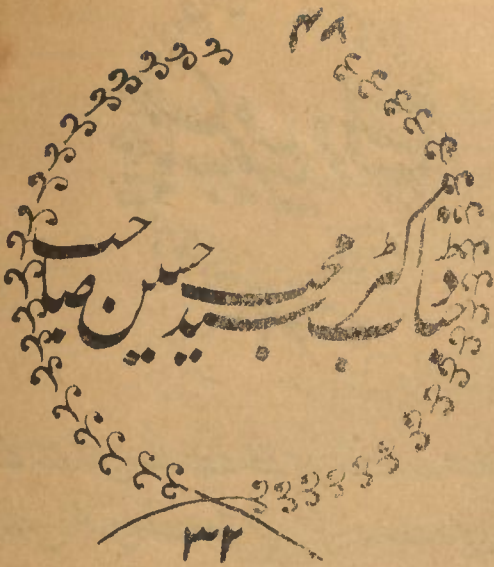 ۳۸
جناب ڈاکٹر سید محب حسین صاحب
۳۲